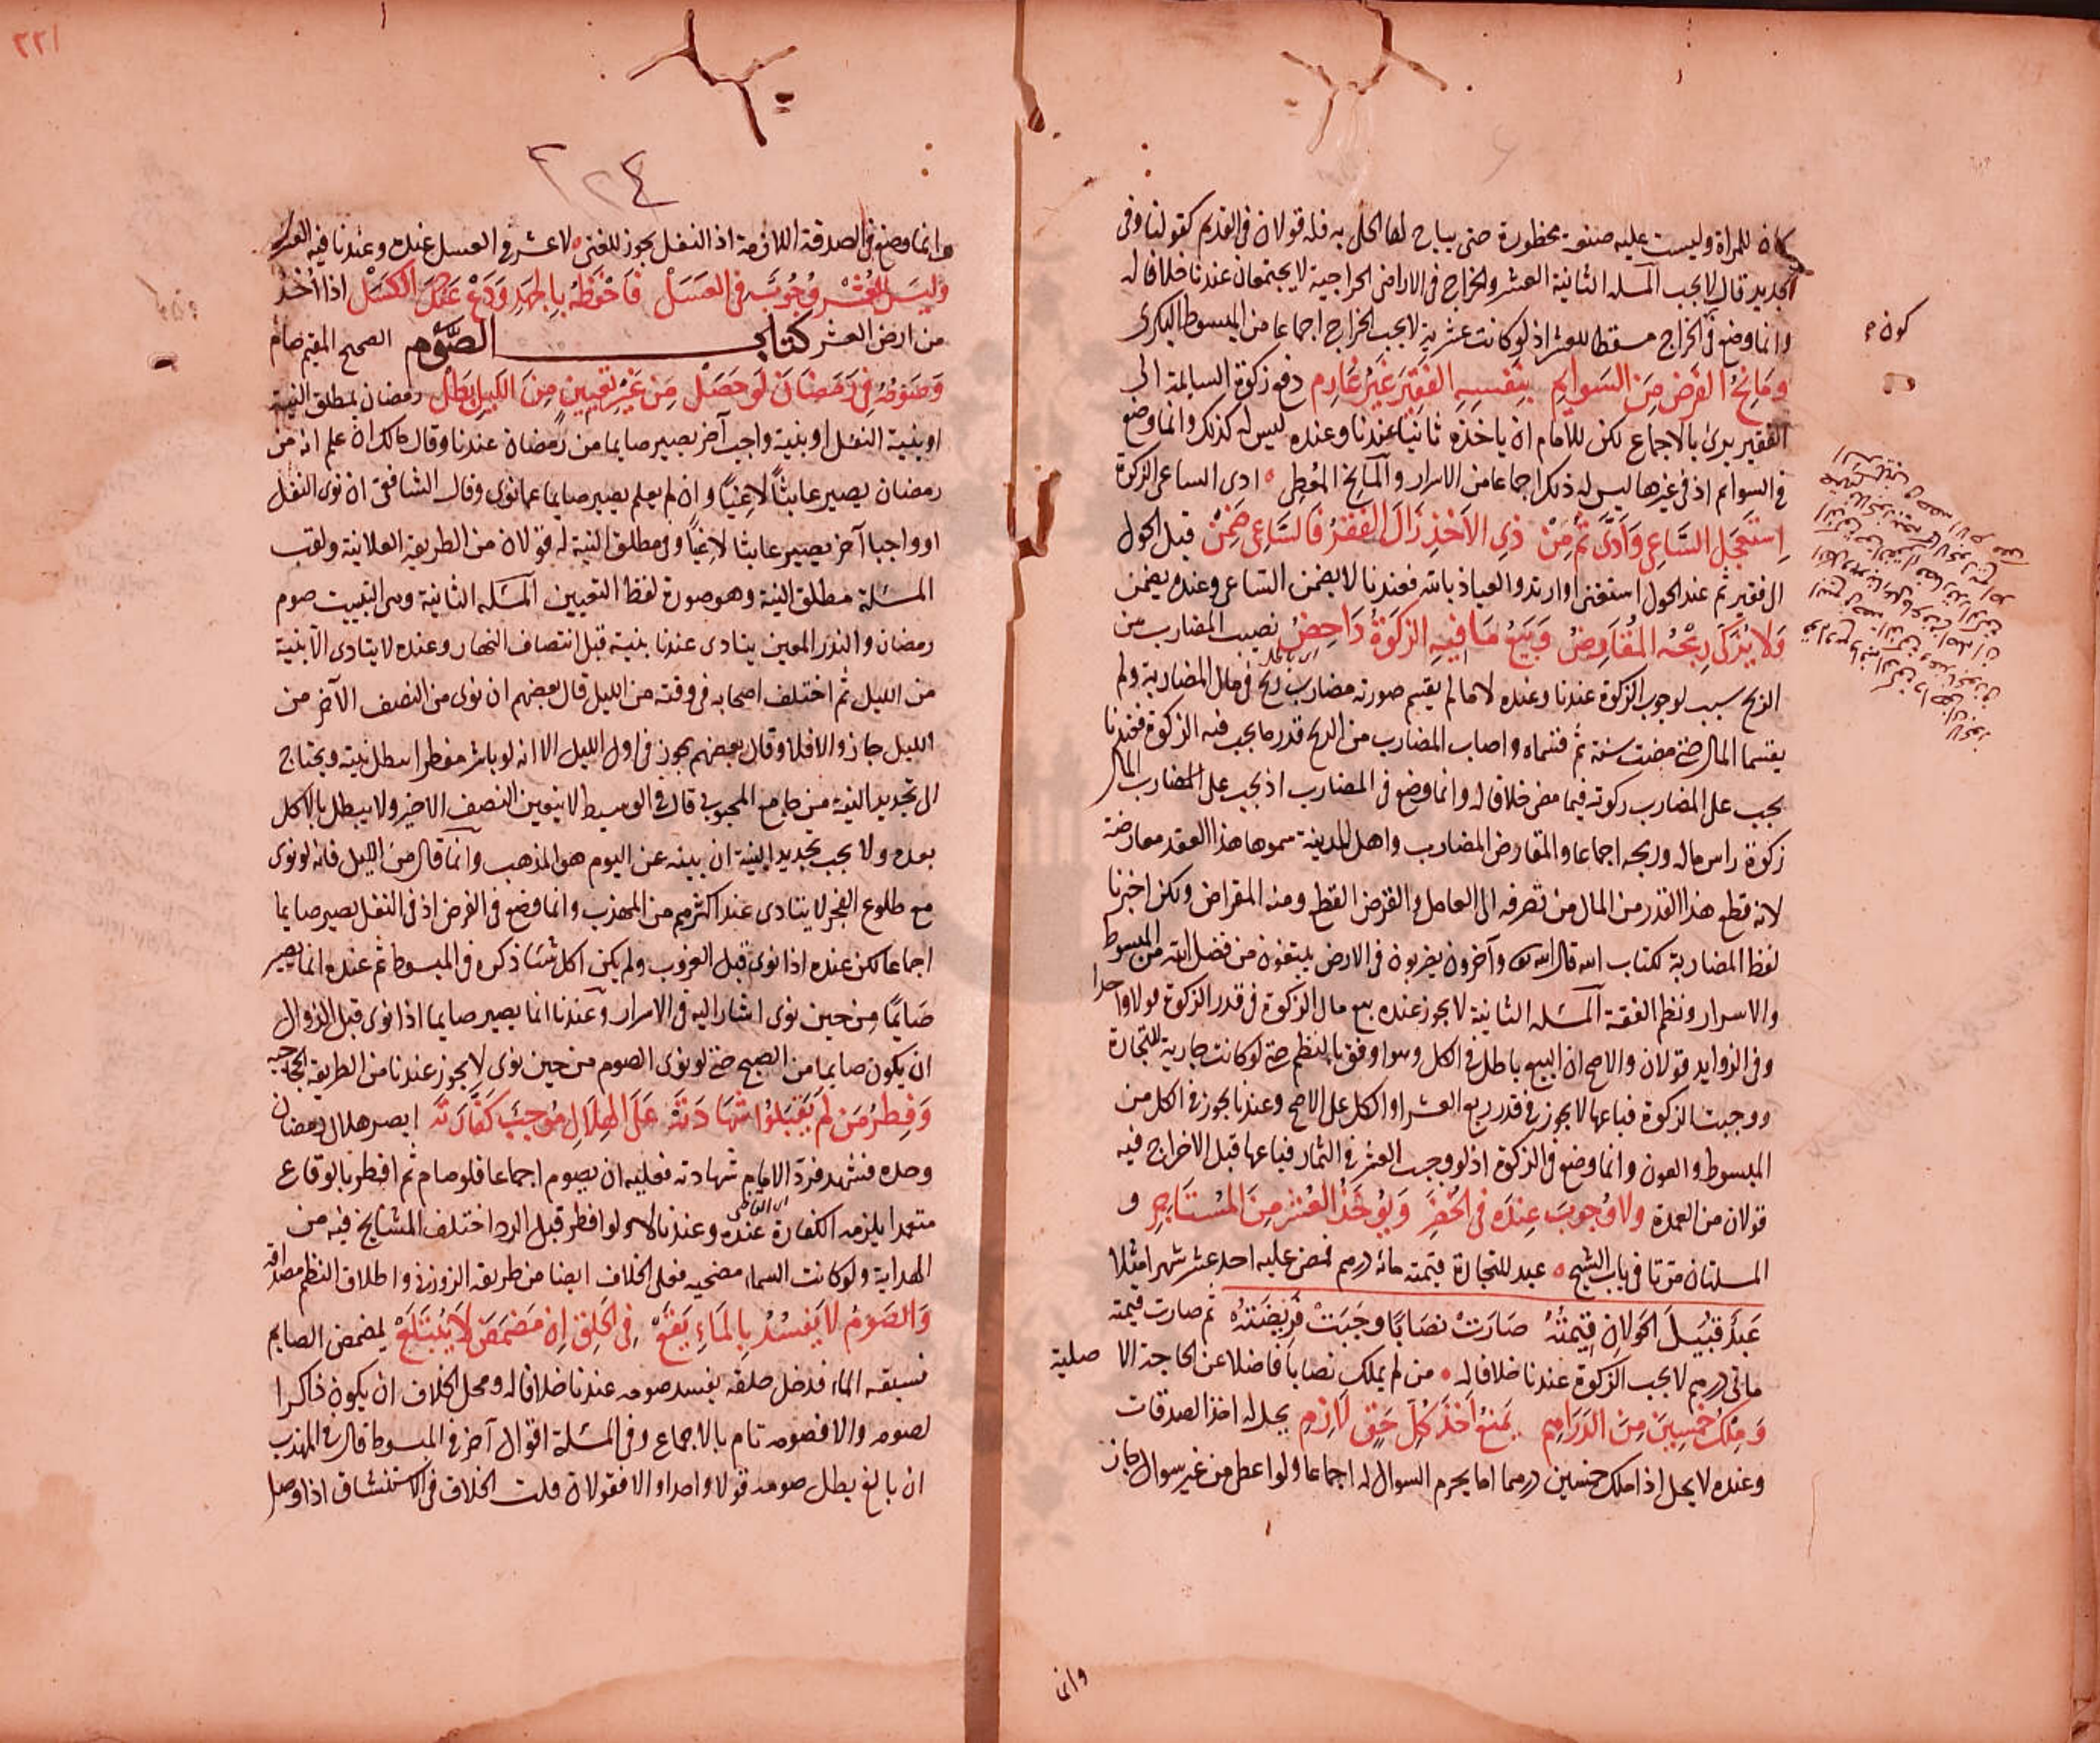 كان للمراة وليست عليه صنعة محظورة حتى يباح لها الحلى به فله قولان فى القديم كقولنا وفى
الجديد قال لا يجب المسله الثانية العشر والخراج فى الاراضى الخراجية لا يجتمعان عندنا خلافا له
وانما وضع فى الخراج مسقطا للعشر اذ لو كانت عشرية لا يجب الخراج اجماعا من المبسوط البكرى
ومانح الفرض من السوايم بنفسه الفقير غير غارم دفع زكوة السايمة الى
الفقير برئ بالاجماع لكن للامام ان ياخذه ثانيا عندنا وعنده ليس له كذلك وانما وضع
فى السوايم اذ فى غيرها ليس له ذلك اجماعا من الاسرار والمانح المعطى ادى الساعى الزكوة
استعجل الساعى وادى ثم من ذى الاخذ زال الفقر فالساعى ضمن قبل الحول
الى فقير ثم عند الحول استغنى او ارتد والعياذ بالله فعندنا لا يضمن الساعى وعنده يضمن
ولا يزكى ربحه المقارض وبيع ما فيه الزكوة داحض نصيب المضارب من
اى باطل
الربح سبب لوجوب الزكوة عندنا وعنده لا ما لم يقسم صورته مضارب ربح فى مال المضاربة ولم
يقتسما المال حتى مضت سنة ثم قسماه واصاب المضارب من الربح قدر ما يجب فيه الزكوة فعندنا
يجب على المضارب زكوته فيما مضى خلافا له وانما وضع فى المضارب اذ يجب على المضارب المال
زكوة راس ماله وربحه اجماعا والمقارض المضارب واهل المدينة سموها هذا العقد مقارضة
لانه قطع هذا القدر من المال من تصرفه الى العامل والقرض القطع ومنه المقراض ولكن اخترنا
لفظ المضاربة لكتاب الله قال الله تع وآخرون يضربون فى الارض يبتغون من فضل الله من المبسوط
والاسرار ونظم الفقه المسله الثانية لا يجوز عنده بيع مال الزكوة فى قدر الزكوة قولا واحدا
وفى الزوايد قولان والاصح ان البيع باطل فى الكل وهو اوفق بالنظم حتى لو كانت جارية للتجارة
ووجبت الزكوة فباعها لا يجوز فى قدر ربع العشر او الكل على الاصح وعندنا يجوز فى الكل من
المبسوط والعون وانما وضع فى الزكوة اذ لو وجب العشر فى الثمار فباعها قبل الاخراج فيه
قولان من العمدة ولا وجوب عنده فى الخضر ويؤخذ العشر من المستاجر و
المسلتان مرتا فى باب الشيخ عبد للتجارة قيمته مائة درهم فمضى عليه احد عشر شهرا مثلا
عبد قبيل الحول ان قيمته صارت نصابا وجبت فريضته ثم صارت قيمته
مائتى درهم لا يجب الزكوة عندنا خلافا له من لم يملك نصابا فاضلا عن الحاجة الا صلية
وملك خمسين من الدراهم يمنع اخذ كل حق لازم يحل له اخذ الصدقات
وعنده لا يحل اذا ملك خمسين درهما اما يحرم السوال له اجماعا ولو اعطى من غير سوال جاز
وانما
كون م
٢٢١
٢٢٤
وانما وضع فى الصدقة اللازمة اذ النفل يجوز للغنى لا عشر فى العسل عنده وعندنا فيه العشر
وليس للعشر وجوب فى العسل فاحفظه بالجهد ودع عنك الكسل اذا اخذ
من ارض العشر كتاب الصوم الصحيح المقيم صام
وصومه فى رمضان لو حصل من غير تعيين من الليل بطل رمضان بمطلق النية
او بنية النفل او بنية واجب آخر يصير صايما من رمضان عندنا وقال مالك ان علم انه من
رمضان يصير عابثا لاغيا وان لم يعلم يصير صايما عما نوى وقال الشافعى ان نوى النفل
او واجبا آخر يصير عابثا لاغيا وفى مطلق النية له قولان من الطريقة العلائية ولقب
المسئلة مطلق النية وهو صورة لفظ التعيين المسئله الثانية وهى التبييت صوم
رمضان والنذر المعين يتادى عندنا بنية قبل انتصاف النهار وعنده لا يتادى الا بنية
من الليل ثم اختلف اصحابه فى وقته من الليل قال بعضهم ان نوى من النصف الآخر من
الليل جاز والا فلا وقال بعضهم يجوز فى اول الليل الا انه لو باشر مفطرا بطل نيته ويحتاج
الى تجديد النية من جامع المحبوبى قال فى الوسيط لا يتعين النصف الاخير ولا يبطل بالاكل
بعده ولا يجب تجديد النية ان بينه عن اليوم هو المذهب وانما قال من الليل فانه لو نوى
مع طلوع الفجر لا يتادى عند اكثرهم من المهذب وانما وضع فى الفرض اذ فى النفل يصير صايما
اجماعا لكن عنده اذا نوى قبل الغروب ولم يكن اكل شيئا ذكره فى المبسوط ثم عنده انما يصير
صايما من حين نوى اشار اليه فى الاسرار وعندنا انما يصير صايما اذا نوى قبل الزوال
ان يكون صايما من الصبح حتى لو نوى الصوم من حين نوى لا يجوز عندنا من الطريقة الحجاجيه
وفطر من لم يقبلوا شهادته على الهلال موجب كفارته ابصر هلال رمضان
وحده فشهد فرد الامام شهادته فعليه ان يصوم اجماعا فلو صام ثم افطر بالوقاع
اى القاضى
متعمدا يلزمه الكفارة عنده وعندنا لا ولو افطر قبل الرد اختلف المشايخ فيه من
الهداية ولو كانت السماء مضحيه فعلى الخلاف ايضا من طريقه الزوزنى واطلاق النظم مصداقه
والصوم لا يفسد بالماء يقع فى الحلق ان مضمض لا يبتلع لمضمض الصايم
فسبقه الماء فدخل حلقه يفسد صومه عندنا خلافا له ومحل الخلاف ان يكون ذاكرا
لصومه والا فصومه تام بالاجماع وفى المسئلة اقوال آخر فى المبسوط قال فى المهذب
ان بالغ بطل صومه قولا واحدا والا فقولان قلت الخلاف فى الاستنشاق اذا وصل